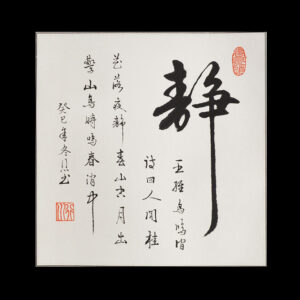 静
王維鳥鳴澗
詩曰人閒桂
花落夜静春山空月出
驚山鳥時鳴春澗中
癸巳年冬